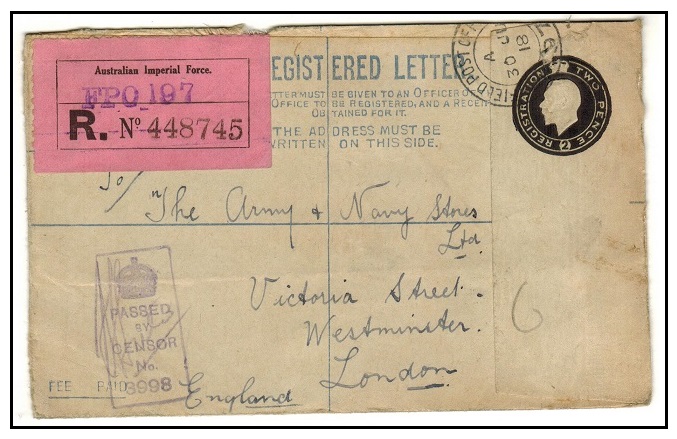 Australian Imperial Force.
FPO 197
R. No 448745
REGISTERED LETTER
LETTER MUST BE GIVEN TO AN OFFICER OF
OFFICE TO BE REGISTERED, AND A RECEIPT
OBTAINED FOR IT.
THE ADDRESS MUST BE
WRITTEN ON THIS SIDE.
FIELD POST OFFICE
A
30 JU
18
REGISTRATION TWO PENCE (2)
To/
The Army & Navy Stores
Ltd
Victoria Street.
Westminster.
London
England
PASSED
BY
CENSOR
No.
3998
FEE PAID
6